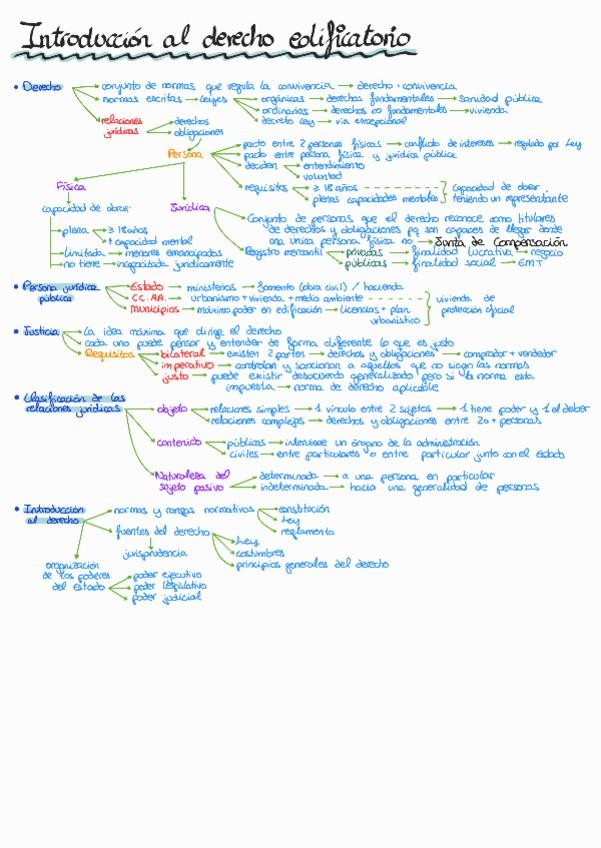 Introducción al derecho edificatorio
• Derecho → conjunto de normas que regula la convivencia → derecho = convivencia
→ normas escritas → Leyes → orgánicas → derechos fundamentales → sanidad pública
→ ordinarias → derechos no fundamentales → vivienda
→ decreto Ley → vía excepcional
relaciones jurídicas → derechos
→ obligaciones
Persona → pacto entre 2 personas físicas → conflicto de intereses → regulado por Ley
→ pacto entre persona física y jurídica pública
→ deciden → entendimiento
→ voluntad
→ requisitos → ≥ 18 años
→ plenas capacidades mentales
capacidad de obrar
teniendo un representante
Física
capacidad de obrar
→ plena → ≥ 18 años
+ capacidad mental
→ Limitada → menores emancipados
→ no tiene → incapacitada jurídicamente
Jurídica
Conjunto de personas que el derecho reconoce como titulares
de derechos y obligaciones pq son capaces de llegar donde
una única persona física no → Junta de Compensación
Registro mercantil → privadas → finalidad lucrativa → negocio
→ públicas → finalidad social → EMT
• Persona jurídica pública → Estado → ministerios → fomento (obra civil) / hacienda
→ CC.AA. → urbanismo + vivienda + medio ambiente
→ municipios → máximo poder en edificación → licencias + plan
urbanístico
vivienda de
protección oficial
• Justicia → La idea máxima que dirige el derecho
→ cada uno puede pensar y entender de forma diferente lo que es justo
→ Requisitos → bilateral → existen 2 partes → derechos y obligaciones → comprador + vendedor
→ imperativo → controlan y sancionan a aquellos que no sigan las normas
→ justo → puede existir desacuerdo generalizado pero si la norma está
impuesta → norma de derecho aplicable
• Clasificación de las
relaciones jurídicas → objeto → relaciones simples → 1 vínculo entre 2 sujetos → 1 tiene poder y 1 el deber
→ relaciones complejas → derechos y obligaciones entre 2 o + personas
→ contenido → públicas → interviene un órgano de la administración
→ civiles → entre particulares o entre particular junto con el estado
→ Naturaleza del
sujeto pasivo → determinada → a una persona en particular
→ indeterminada → hacia una generalidad de personas
• Introducción
al derecho → normas y rangos normativos → constitución
→ Ley
→ reglamento
→ fuentes del derecho → Ley
→ costumbres
→ principios generales del derecho
jurisprudencia
organización
de los poderes
del estado → poder ejecutivo
→ poder legislativo
→ poder judicial